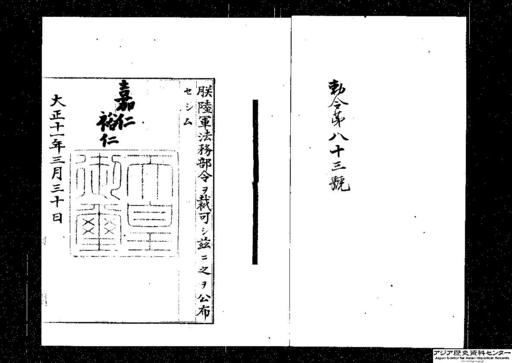 勅令第八十三號
朕陸軍法務部令ヲ裁可シ玆ニ之ヲ公布
セシム
嘉仁
裕仁
天皇
御璽
大正十一年三月三十日
アジア歴史資料センター
Japan Center for Asian Historical Records